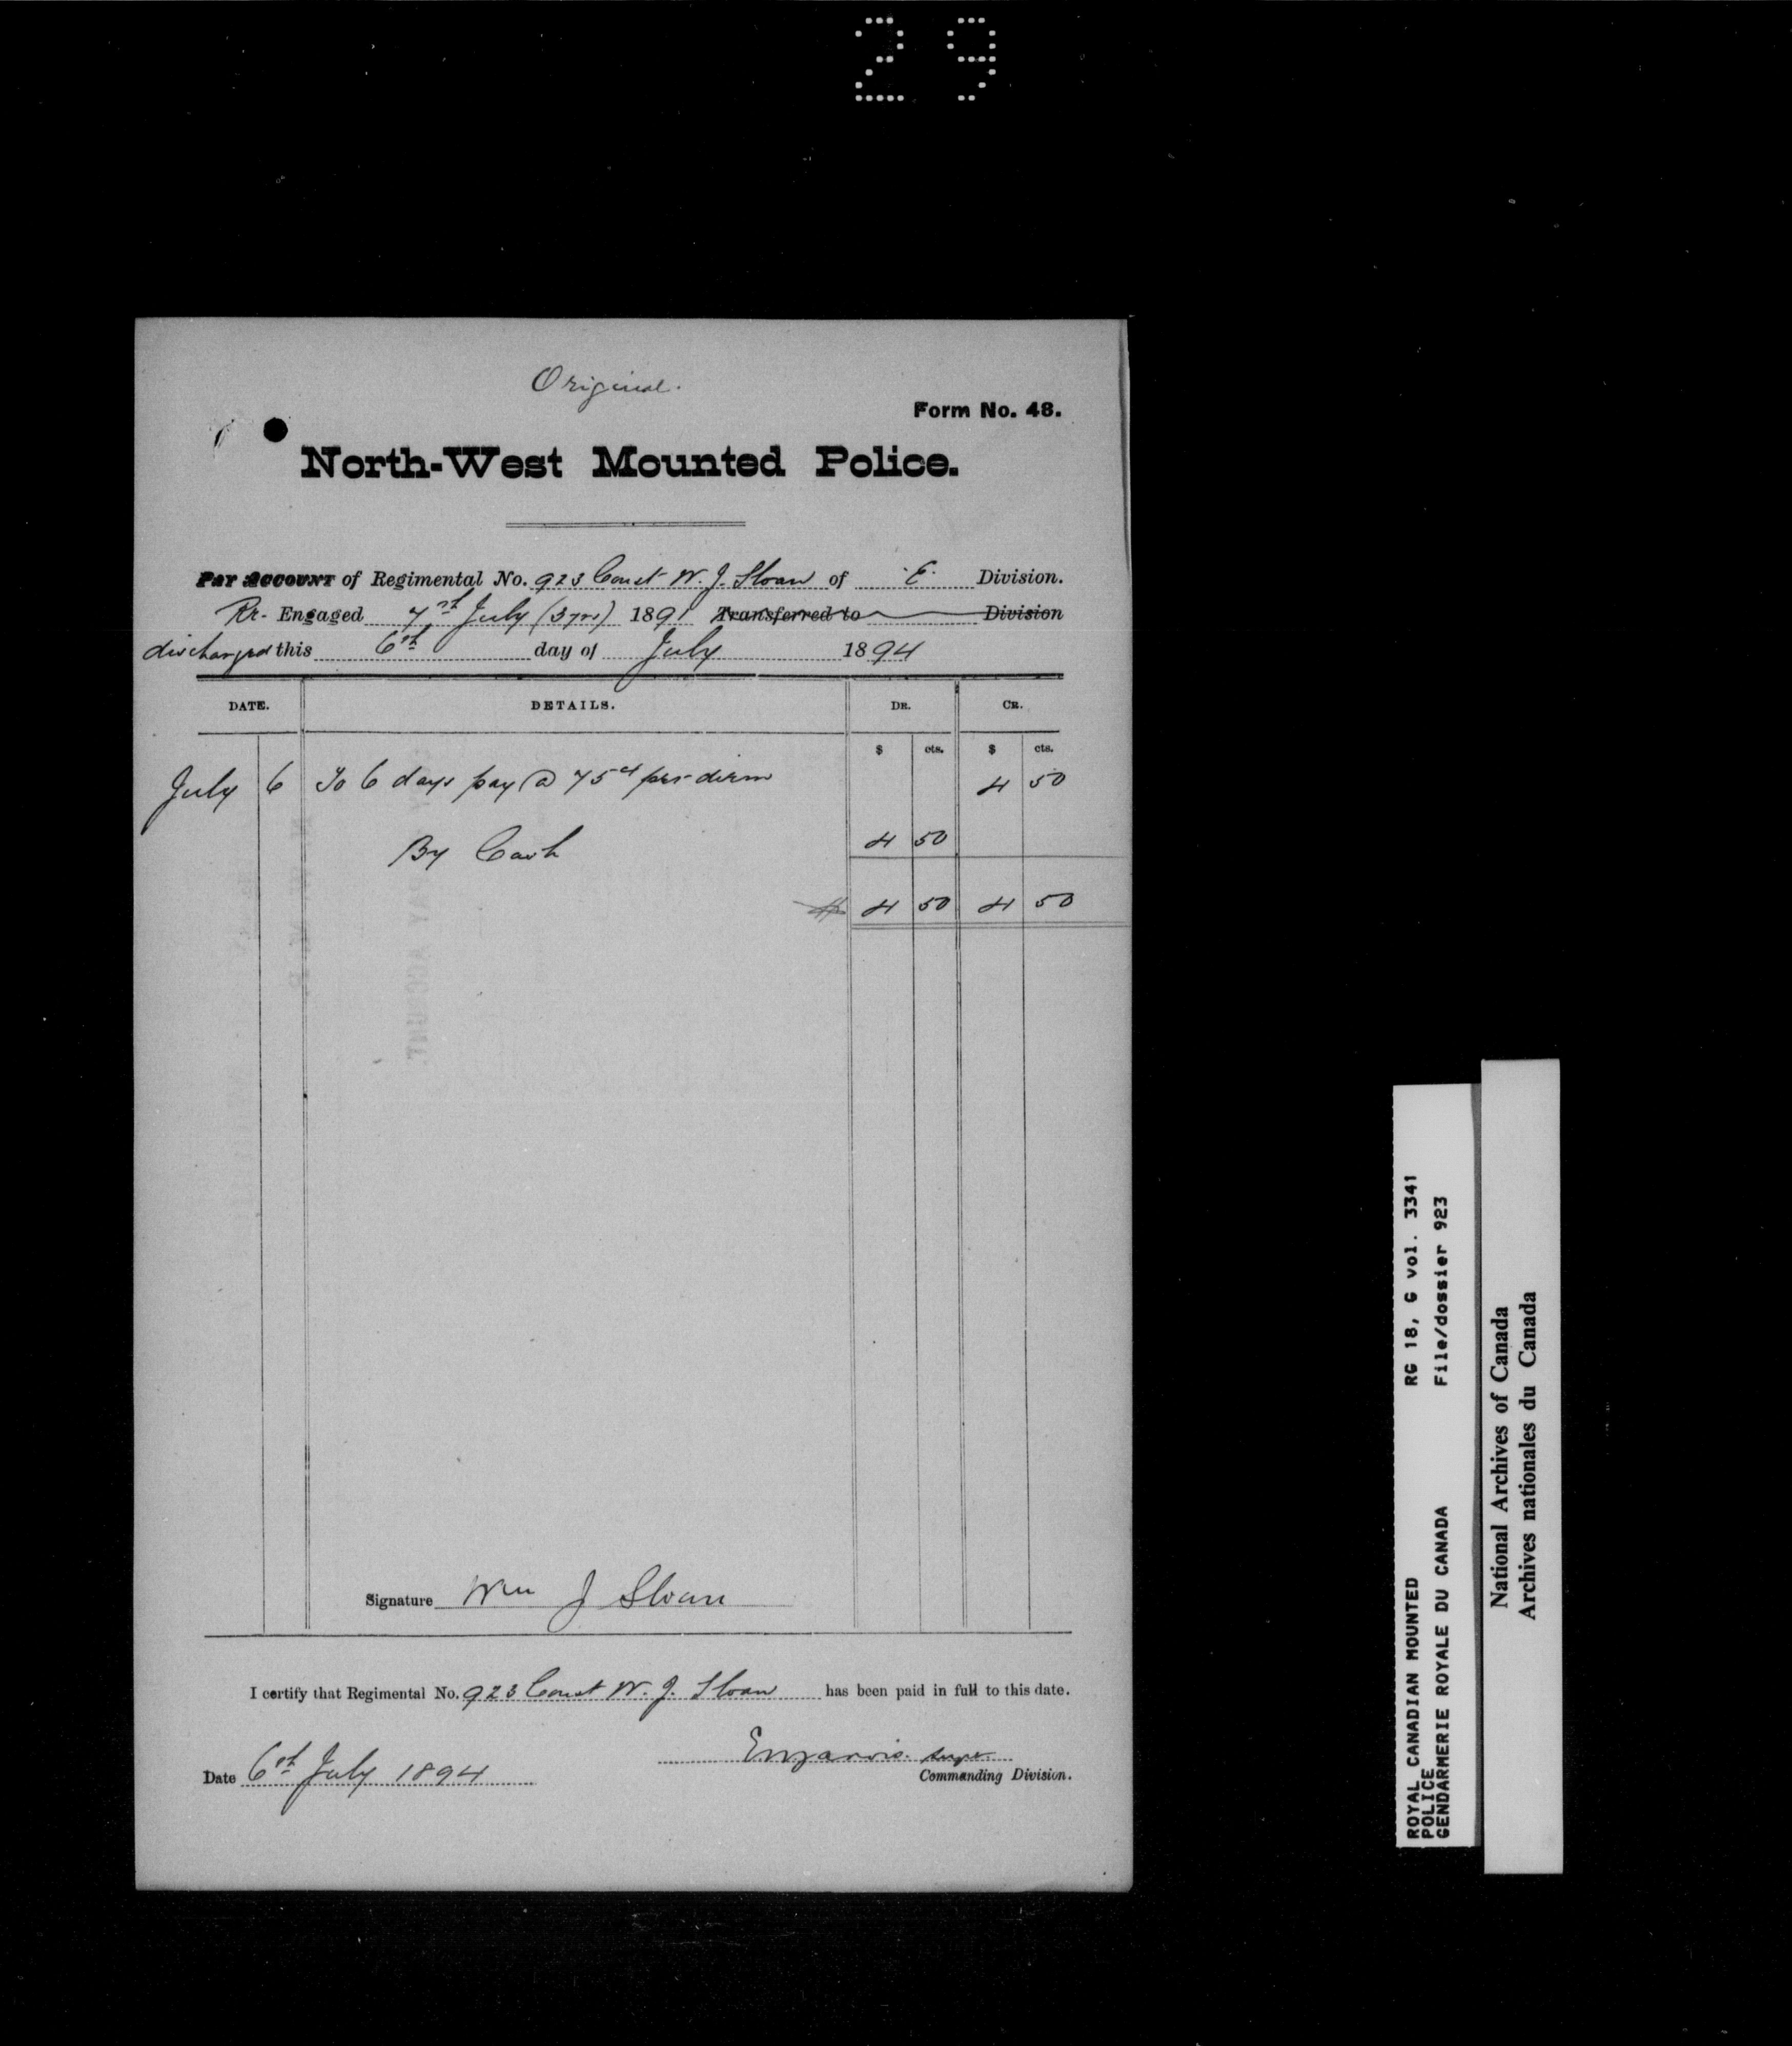 29
Original.
Form No. 48.
North-West Mounted Police.
Pay Account of Regimental No. 923 Const W. J. Sloan of "E" Division.
Re- Engaged 7th July (3 yrs) 1891 Transferred to Division
discharged this 6th day of July 1894
DATE. DETAILS. DR. CR.
$ cts. $ cts.
July 6 To 6 days pay @ 75 cts per diem 4 50
By Cash 4 50
$ 4 50 4 50
Signature Wm J Sloan
I certify that Regimental No. 923 Const W. J. Sloan has been paid in full to this date.
Date 6th July 1894
EWJarvis. Supt.
Commanding Division.
ROYAL CANADIAN MOUNTED RG 18, G vol. 3341
POLICE
GENDARMERIE ROYALE DU CANADA File/dossier 923
National Archives of Canada
Archives nationales du Canada